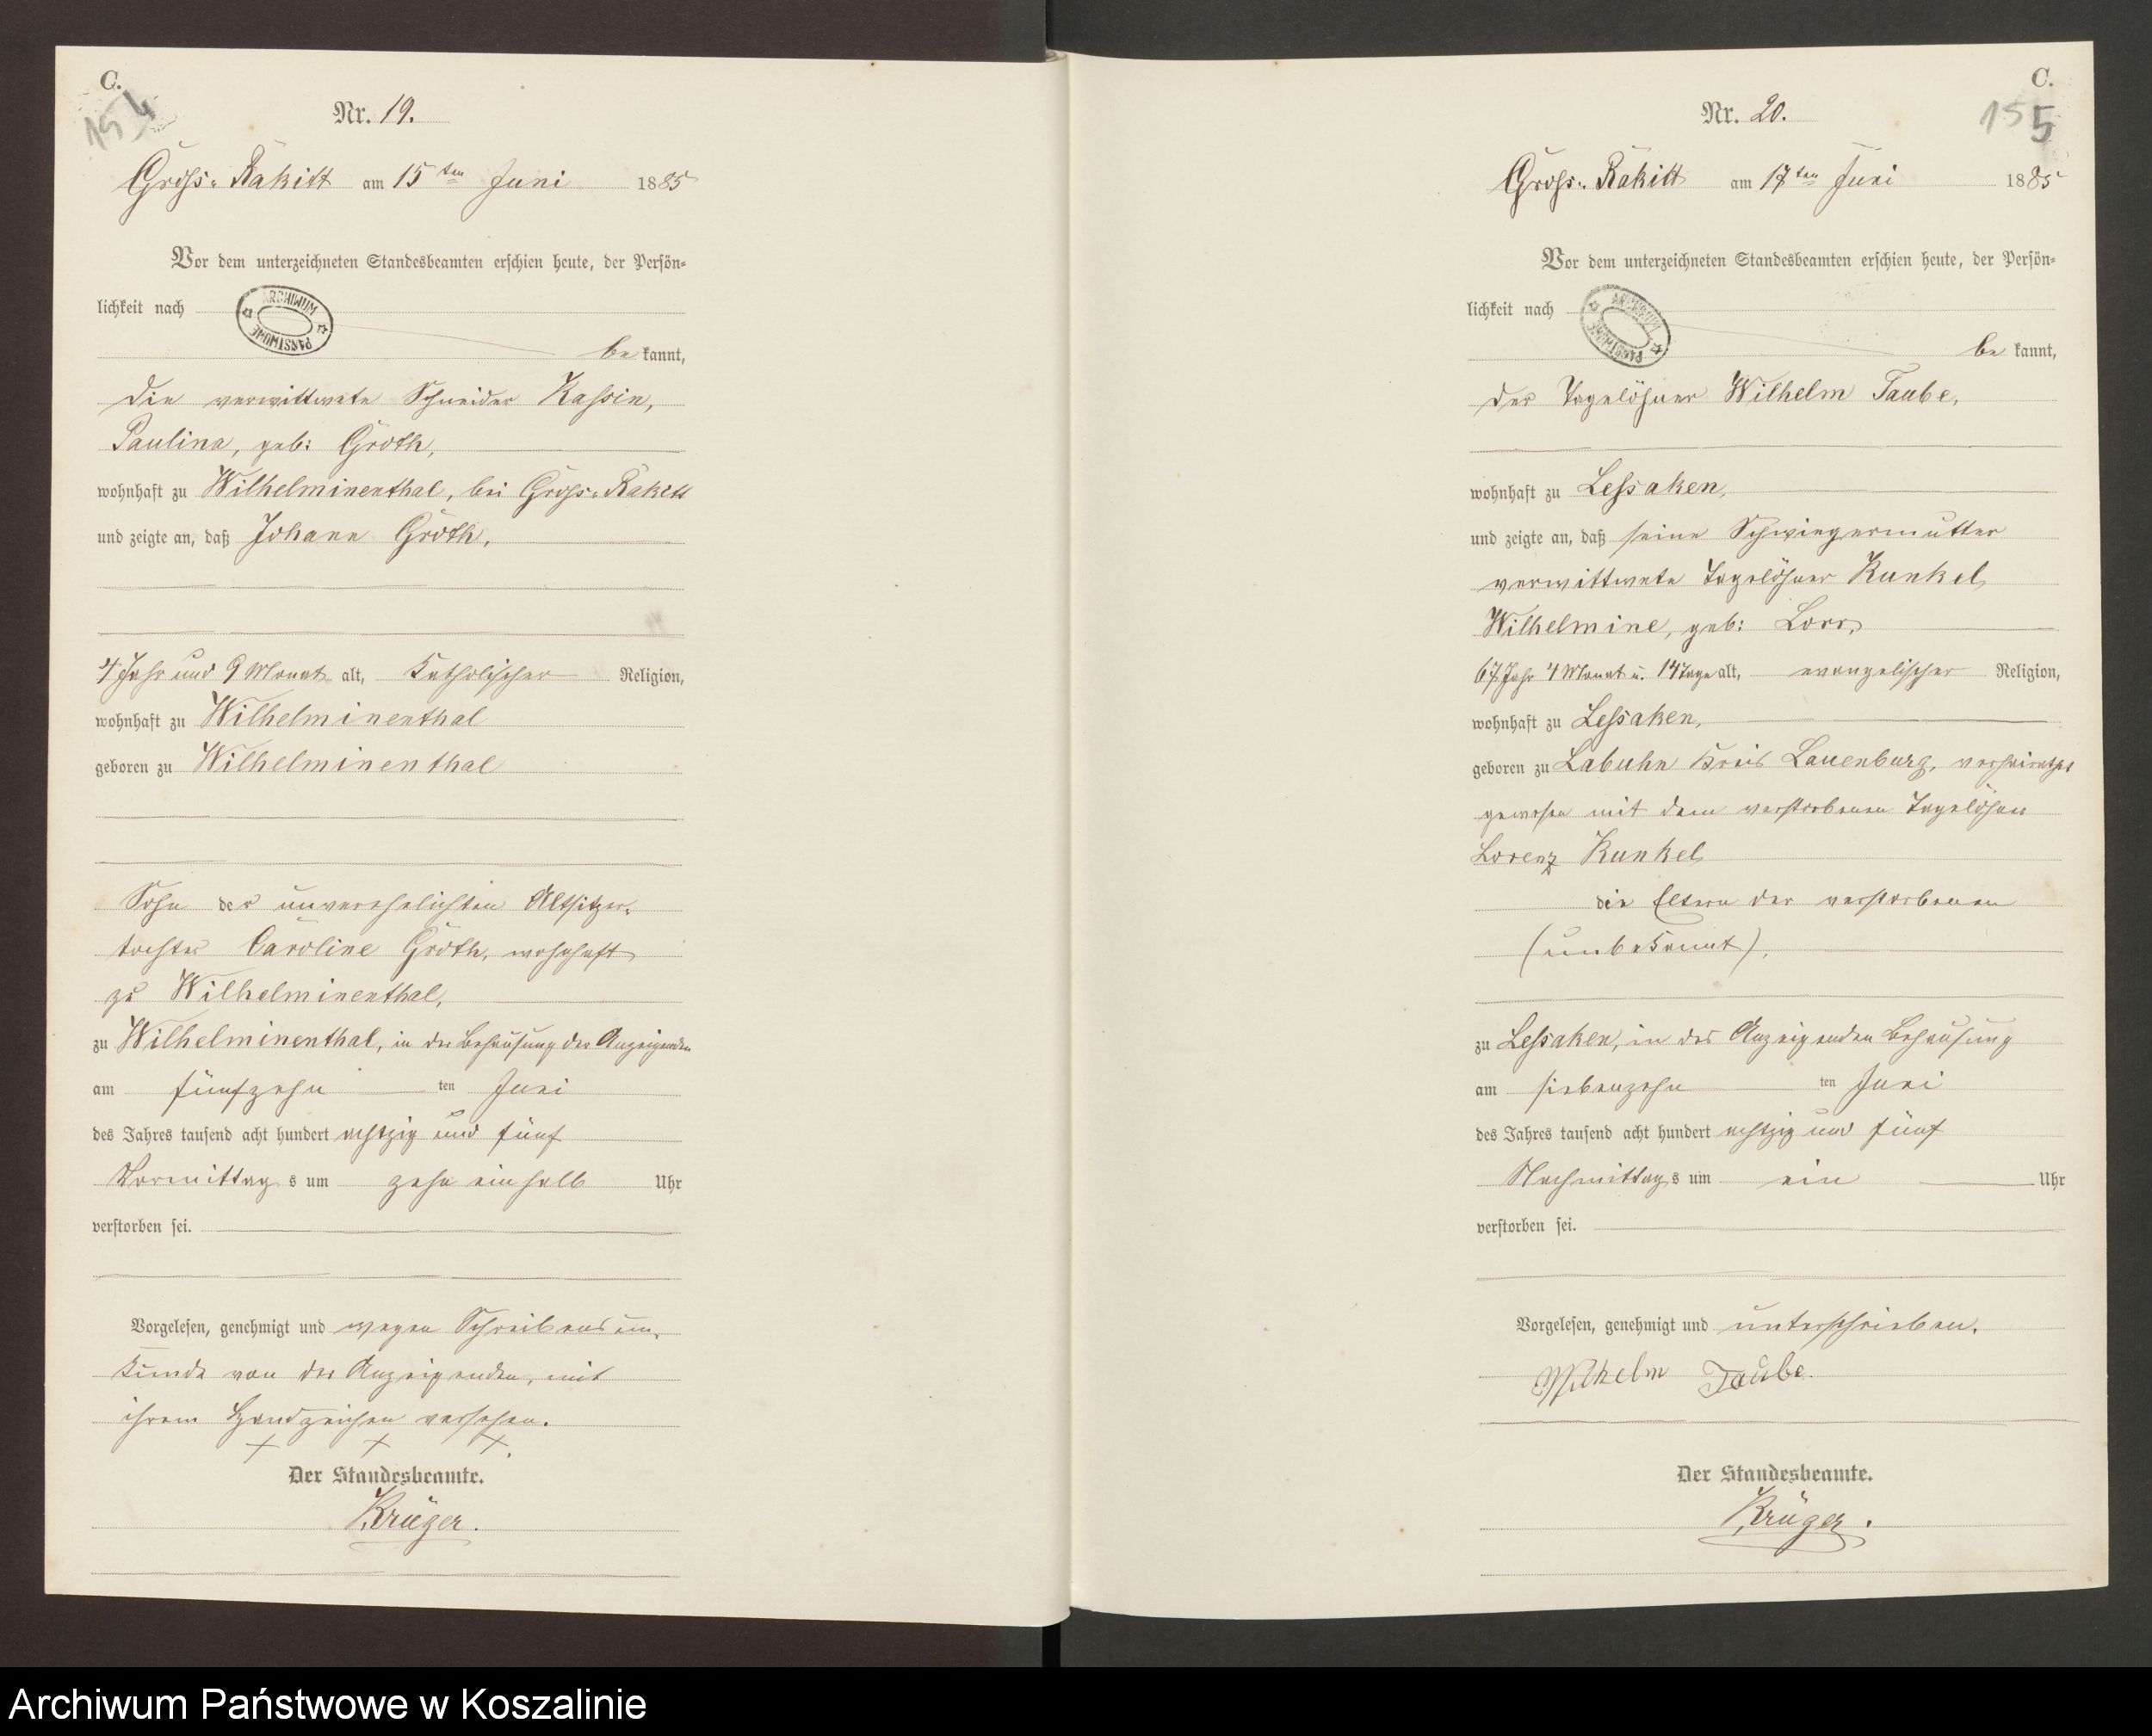 C.
154
Nr. 19.
Gross-Rakitt am 15ten Juni 1885
Vor dem unterzeichneten Standesbeamten erschien heute, der Persön-
lichkeit nach
ARCHIWUM PAŃSTWOWE
bekannt,
die verwittwete Schneider Kassin,
Paulina, geb: Groth,
wohnhaft zu Wilhelminenthal, bei Gross-Rakitt
und zeigte an, daß Johann Groth,
4 Jahr und 9 Monat alt, Katholischer Religion,
wohnhaft zu Wilhelminenthal
geboren zu Wilhelminenthal
Sohn der unverehelichten Altsitzer-
tochter Caroline Groth, wohnhaft
zu Wilhelminenthal,
zu Wilhelminenthal, in der Behausung der Anzeigenden
am fünfzehn ten Juni
des Jahres tausend acht hundert achtzig und fünf
Vormittags um zehn ein halb Uhr
verstorben sei.
Vorgelesen, genehmigt und wegen Schreibensun-
kunde von der Anzeigenden, mit
ihrem Handzeichen versehen.
+ + +.
Der Standesbeamte.
Krüger.
C.
155
Nr. 20.
Gross-Rakitt am 17ten Juni 1885
Vor dem unterzeichneten Standesbeamten erschien heute, der Persön-
lichkeit nach
ARCHIWUM PAŃSTWOWE
bekannt,
der Tagelöhner Wilhelm Taube,
wohnhaft zu Lessaken,
und zeigte an, daß seine Schwiegermutter
verwittwete Tagelöhner Kunkel
Wilhelmine, geb: Lorr,
67 Jahr 4 Monat u. 14 Tage alt, evangelischer Religion,
wohnhaft zu Lessaken,
geboren zu Labuhn Kreis Lauenburg, verheirathet
gewesen mit dem verstorbenen Tagelöhner
Lorenz Kunkel
die Eltern der verstorbenen
(unbekannt),
zu Lessaken, in des Anzeigenden Behausung
am siebenzehn ten Juni
des Jahres tausend acht hundert achtzig und fünf
Nachmittags um ein Uhr
verstorben sei.
Vorgelesen, genehmigt und unterschrieben.
Wilhelm Taube.
Der Standesbeamte.
Krüger.
Archiwum Państwowe w Koszalinie